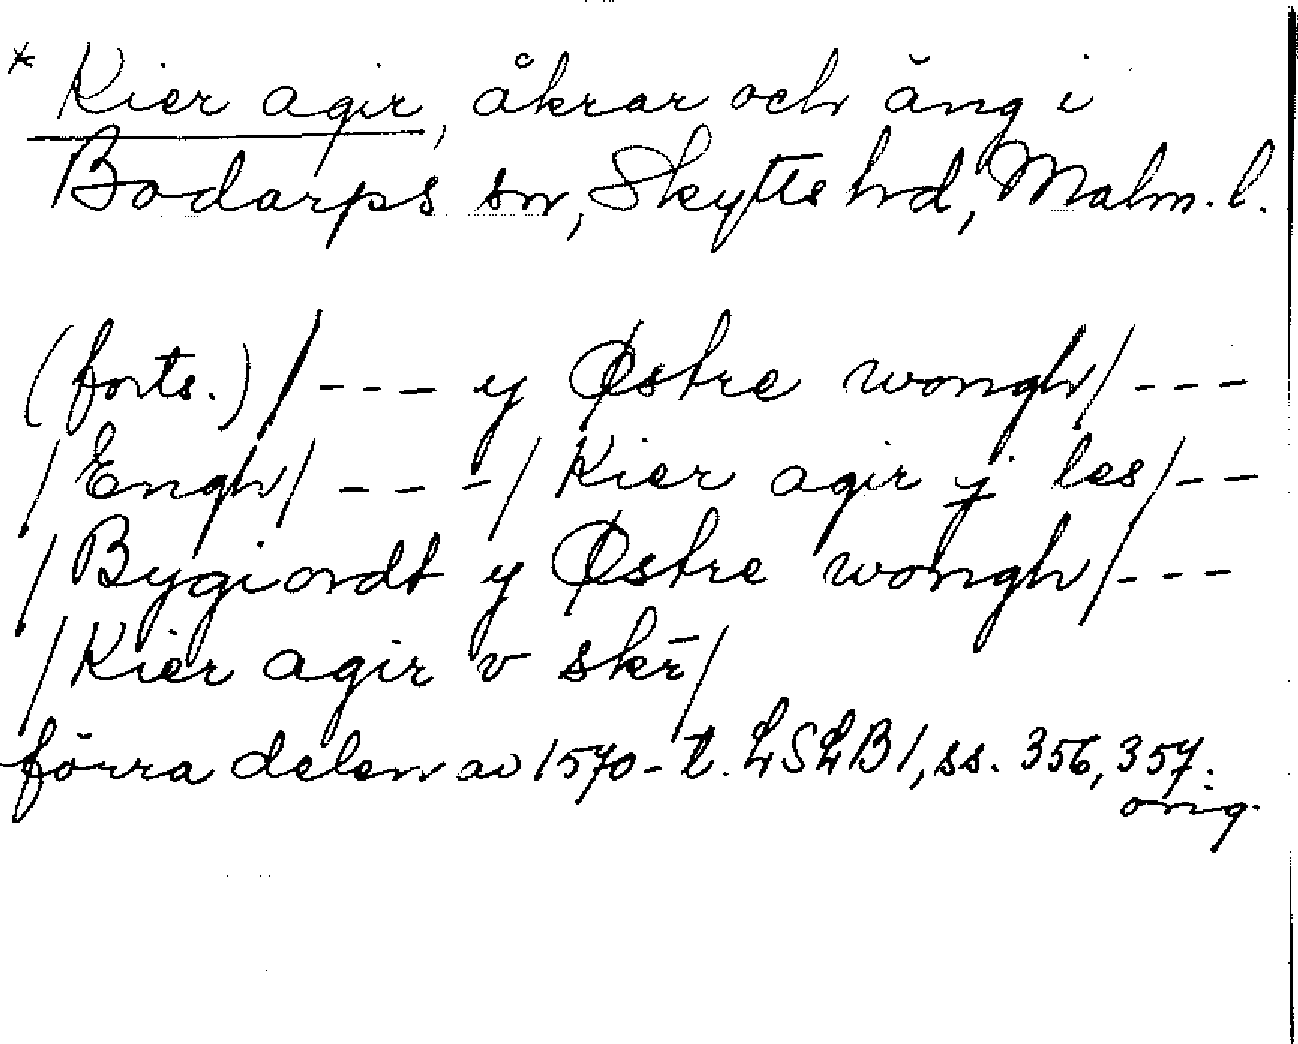 * Kier agir, åkrar och äng i
Bodarps sn, Skytts hd, Malm. l.
(forts.) /--- y Østre wongh/ ---
/Engh/ --- / Kier agir j les/ --
/Bygiordt y Østre wongh/ ---
/Kier agir v skr̄/
förra delen av 1570-t. LSLB1, ss. 356, 357.
orig.